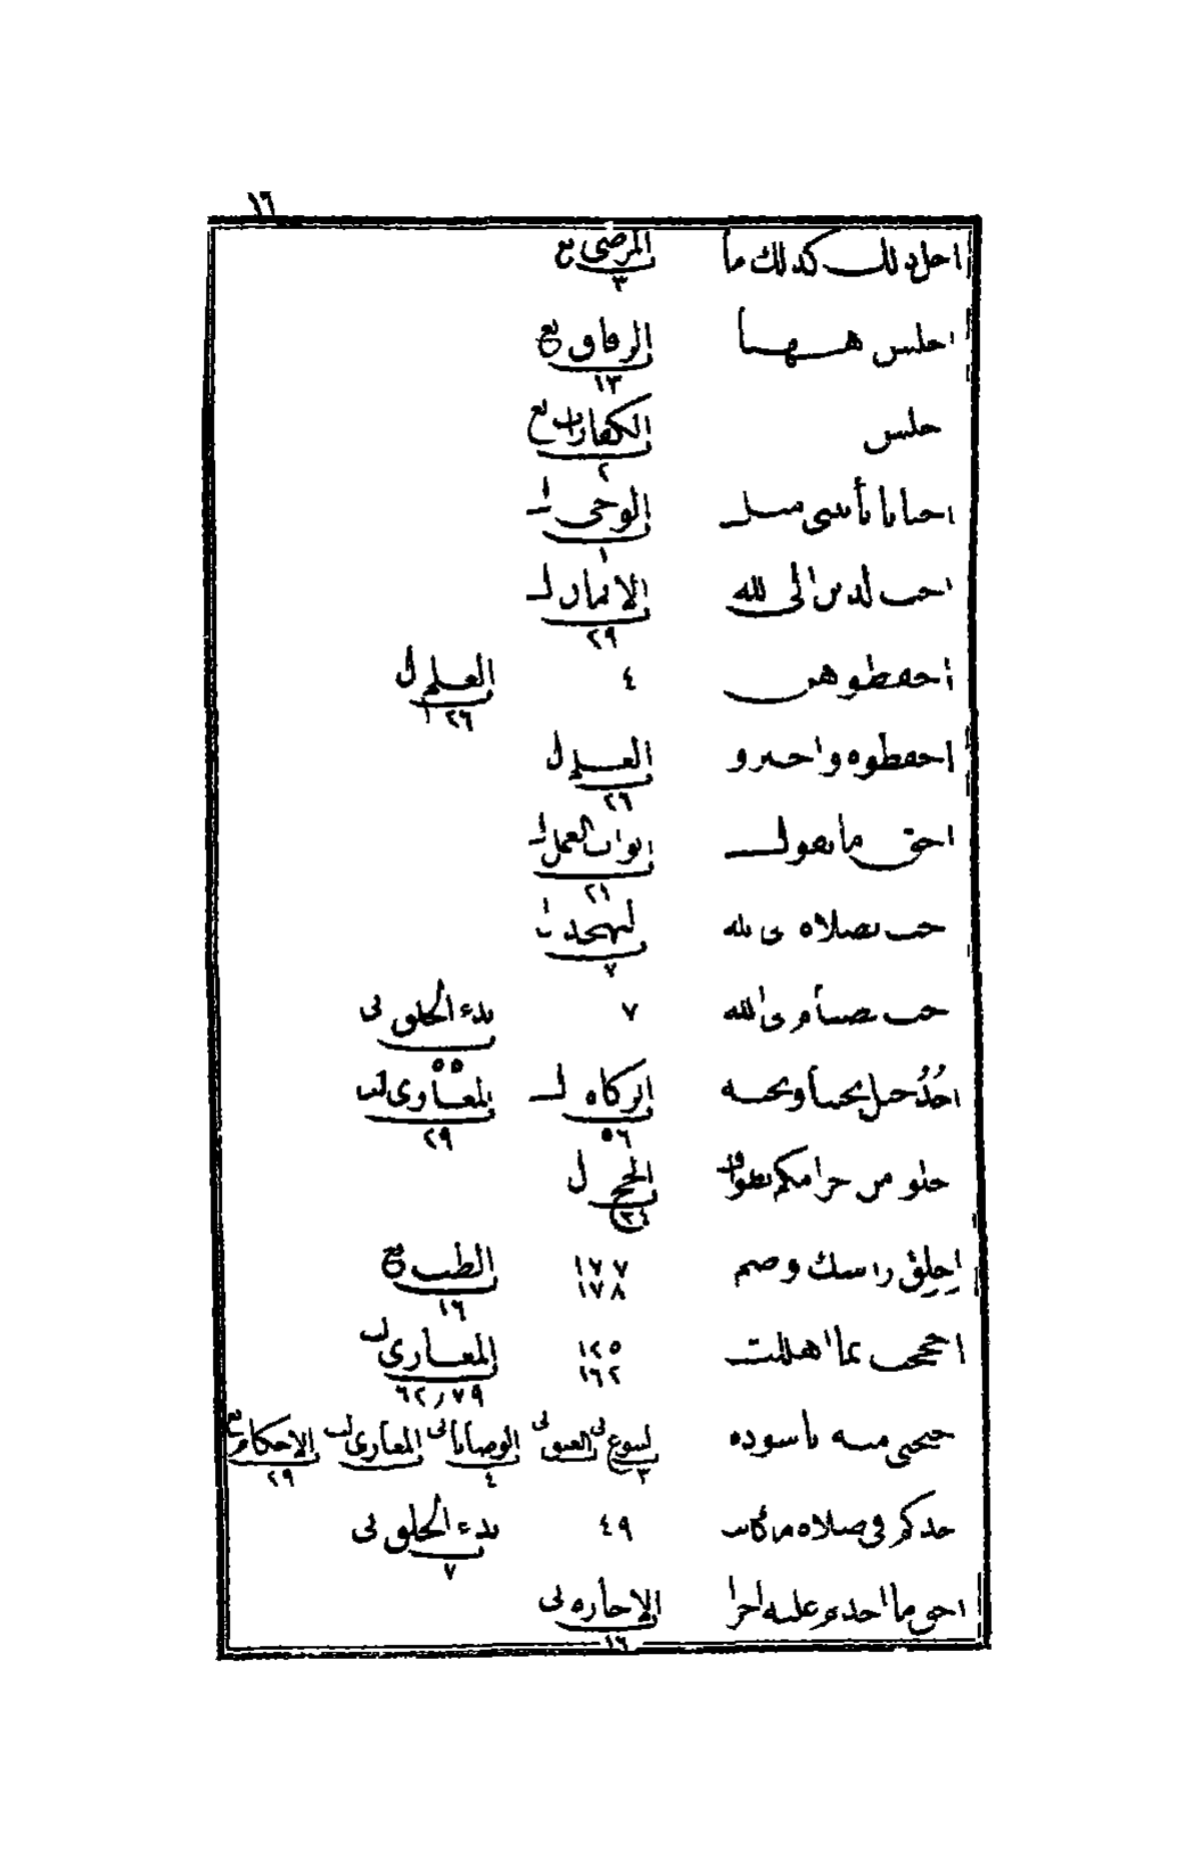 ١٦
اجل ذلك كذلك ما المرضى بع ٣
اجلس ههنا الرقاق بع ١٣
جلس الكفارات بع ٢
احيانا يأتيني مثل الوحى ا ١
احب الدين الى الله الايمان ا ٢٩
احفظوهن ٤ العلم ل ٢٦
احفظوه واخبرو العلم ل ٢٦
احق ما يقول ابواب العمل ا ٢١
حب الصلاة الى الله التهجد ٧
حب الصيام الى الله ٧ بدء الخلق نى ٥٥
اُحُدُ جبل يحبنا ونحبه الزكاه ل ٥٦ المغازى لث ٢٩
حلو من احرامكم بطواف الحج ل ٣٤
اِحلِق راسك وصم ١٧٧ ١٧٨ الطب بع ١٦
احججت بما اهللت ١٢٥ ١٦٢ المغازى لث ٦٢،٧٩
حتجبى منه يا سوده البيوع نى ٣ العتق نى الوصايا نى ٤ المغازى لث الاحكام بع ٢٩
حدكم فى صلاه ما كانت ٤٩ بدء الخلق نى ٧
احق ما اخذتم عليه اجرا الاجاره نى ١٦